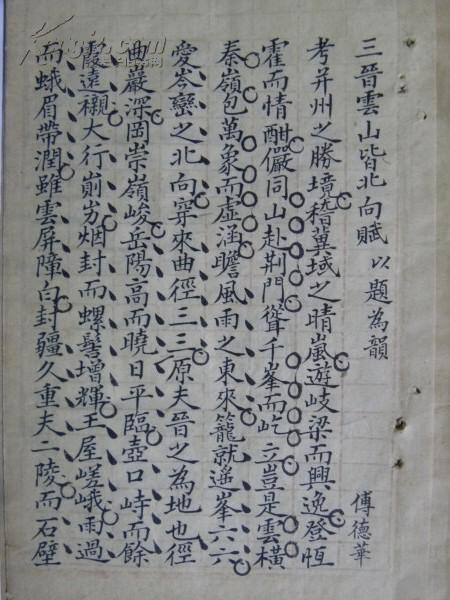 三晉雲山皆北向賦 以題為韻
傅德華
考并州之勝境稽冀域之晴嵐遊岐梁而興逸登恆
霍而情酣儼同山赴荆門聳千峯而屹立豈是雲橫
秦嶺包萬象而虛涵瞻風雨之東來籠就遙峯六六
愛岑巒之北向穿來曲徑三三原夫晉之為地也徑
曲巖深岡崇嶺峻岳陽高而曉日平臨壺口峙而餘
霞遠襯大行崱屴烟封而螺髻增輝王屋嵯峨雨過
而蛾眉帶潤雖雲屏障白封疆久重夫二陵而石壁